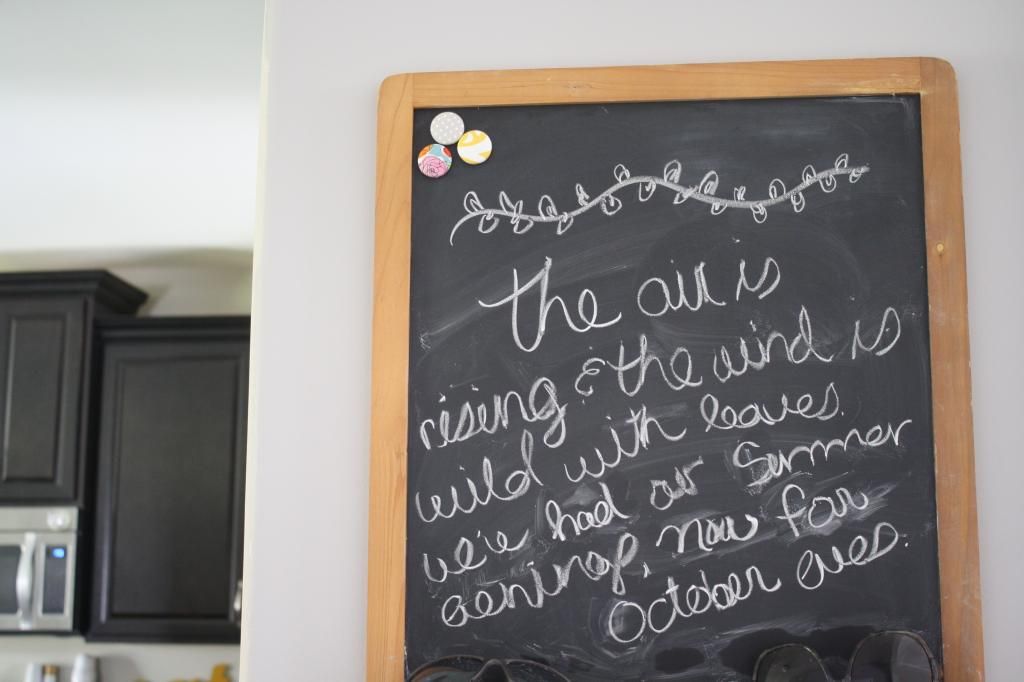 the air is
rising & the wind is
wild with leaves.
we've had our Summer
evenings, now for
October eves.